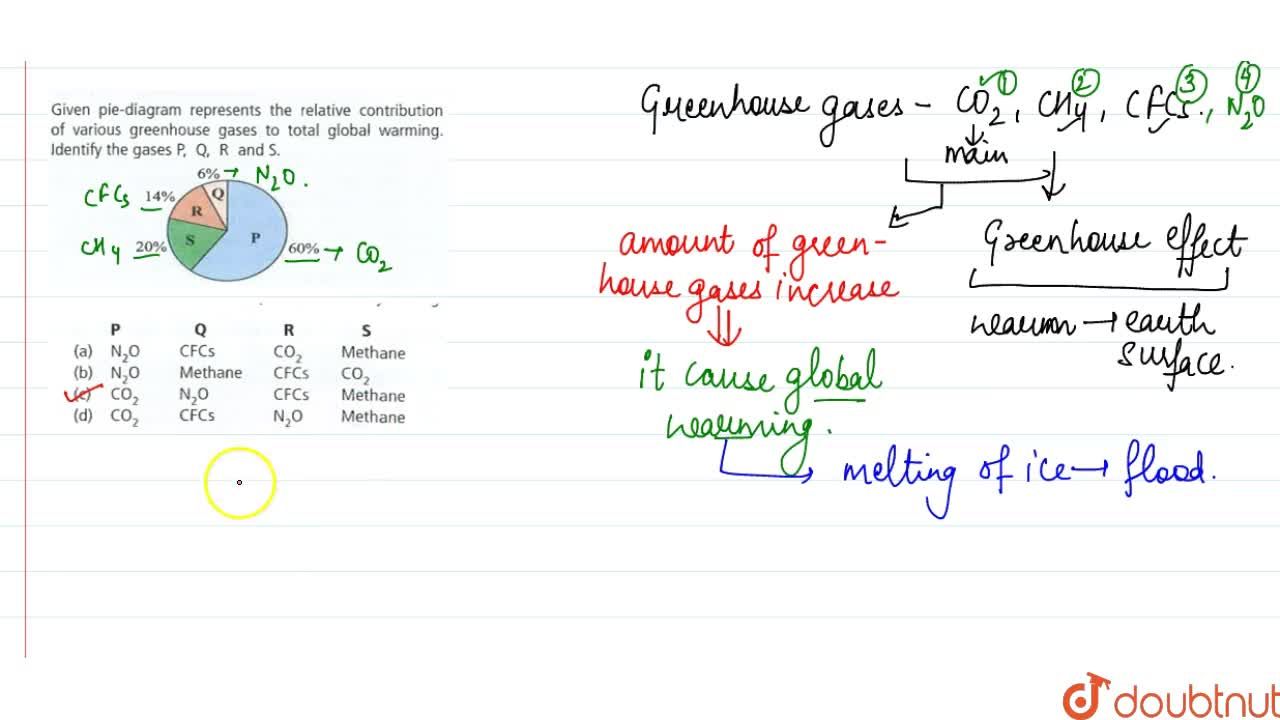 Given pie-diagram represents the relative contribution
of various greenhouse gases to total global warming.
Identify the gases P, Q, R and S.
6% → N₂O.
CFCs 14%
Q
R
CH4 20%
S
P
60% → CO₂
P Q R S
(a) N₂O CFCs CO₂ Methane
(b) N₂O Methane CFCs CO₂
(c) CO₂ N₂O CFCs Methane
(d) CO₂ CFCs N₂O Methane
① ② ③ ④
Greenhouse gases - CO₂, CH4, CFCs., N₂O
main
amount of green-
house gases increase
it cause global
warming.
Greenhouse effect
→ earth
surface.
melting of ice → flood.
doubtnut